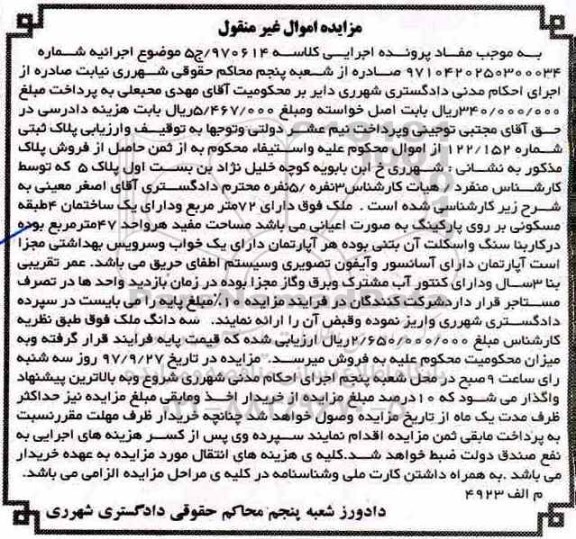 مزایده اموال غیر منقول
به موجب مفاد پرونده اجرایی کلاسه ۹۷۰۶۱۴/ج۵ موضوع اجرائیه شماره
۹۷۱۰۴۲۰۲۵۰۳۰۰۰۳۴ صادره از شعبه پنجم محاکم حقوقی شهرری نیابت صادره از
اجرای احکام مدنی دادگستری شهرری دایر بر محکومیت آقای مهدی محبعلی به پرداخت مبلغ
۳۴۰/۰۰۰/۰۰۰ریال بابت اصل خواسته ومبلغ ۵/۴۶۷/۰۰۰ریال بابت هزینه دادرسی در
حق آقای مجتبی توجینی وپرداخت نیم عشر دولتی وتوجها به توقیف وارزیابی پلاک ثبتی
شماره ۱۲۲/۱۵۲ از اموال محکوم علیه واستیفاء محکوم به از ثمن حاصل از فروش پلاک
مذکور به نشانی : شهرری خ ابن بابویه کوچه خلیل نژاد بن بست اول پلاک ۵ که توسط
کارشناس منفرد / هیات کارشناس۳نفره /۵نفره محترم دادگستری آقای اصغر معینی به
شرح زیر کارشناسی شده است . ملک فوق دارای ۷۲متر مربع ودارای یک ساختمان ۴طبقه
مسکونی بر روی پارکینگ به صورت اعیانی می باشد مساحت مفید هرواحد ۴۷مترمربع بوده
درکاربنا سنگ واسکلت آن بتنی بوده هر آپارتمان دارای یک خواب وسرویس بهداشتی مجزا
است آپارتمان دارای آسانسور وآیفون تصویری وسیستم اطفای حریق می باشد. عمر تقریبی
بنا ۳سال ودارای کنتور آب مشترک وبرق وگاز مجزا بوده در زمان بازدید واحد ها در تصرف
مستاجر قرار دارد شرکت کنندگان در فرایند مزایده ۱۰٪مبلغ پایه را می بایست در سپرده
دادگستری شهرری واریز نموده وقبض آن را ارائه نمایند. سه دانگ ملک فوق طبق نظریه
کارشناس مبلغ ۲/۶۵۰/۰۰۰/۰۰۰ریال ارزیابی شده که قیمت پایه فرایند قرار گرفته وبه
میزان محکومیت محکوم علیه به فروش میرسد. مزایده در تاریخ ۹۷/۹/۲۷ روز سه شنبه
رای ساعت ۹ صبح در محل شعبه پنجم اجرای احکام مدنی شهرری شروع وبه بالاترین پیشنهاد
واگذار می شود که ۱۰درصد مبلغ مزایده از خریدار اخذ ومابقی مبلغ مزایده نیز حداکثر
ظرف مدت یک ماه از تاریخ مزایده وصول خواهد شد چنانچه خریدار ظرف مهلت مقررنسبت
به پرداخت مابقی ثمن مزایده اقدام نمایند سپرده وی پس از کسر هزینه های اجرایی به
نفع صندوق دولت ضبط خواهد شد.کلیه ی هزینه های انتقال مورد مزایده به عهده خریدار
می باشد .به همراه داشتن کارت ملی وشناسنامه در کلیه ی مراحل مزایده الزامی می باشد.
م الف ۴۹۲۳
دادورز شعبه پنجم محاکم حقوقی دادگستری شهرری